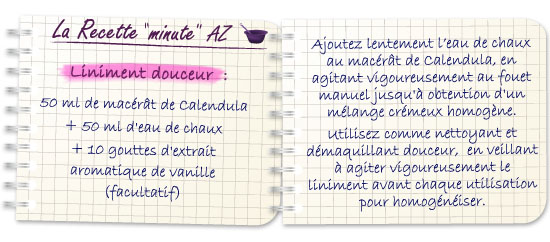 La Recette "minute" AZ
Liniment douceur :
50 ml de macérât de Calendula
+ 50 ml d'eau de chaux
+ 10 gouttes d'extrait
aromatique de vanille
(facultatif)
Ajoutez lentement l'eau de chaux
au macérât de Calendula, en
agitant vigoureusement au fouet
manuel jusqu'à obtention d'un
mélange crémeux homogène.
Utilisez comme nettoyant et
démaquillant douceur, en veillant
à agiter vigoureusement le
liniment avant chaque utilisation
pour homogénéiser.